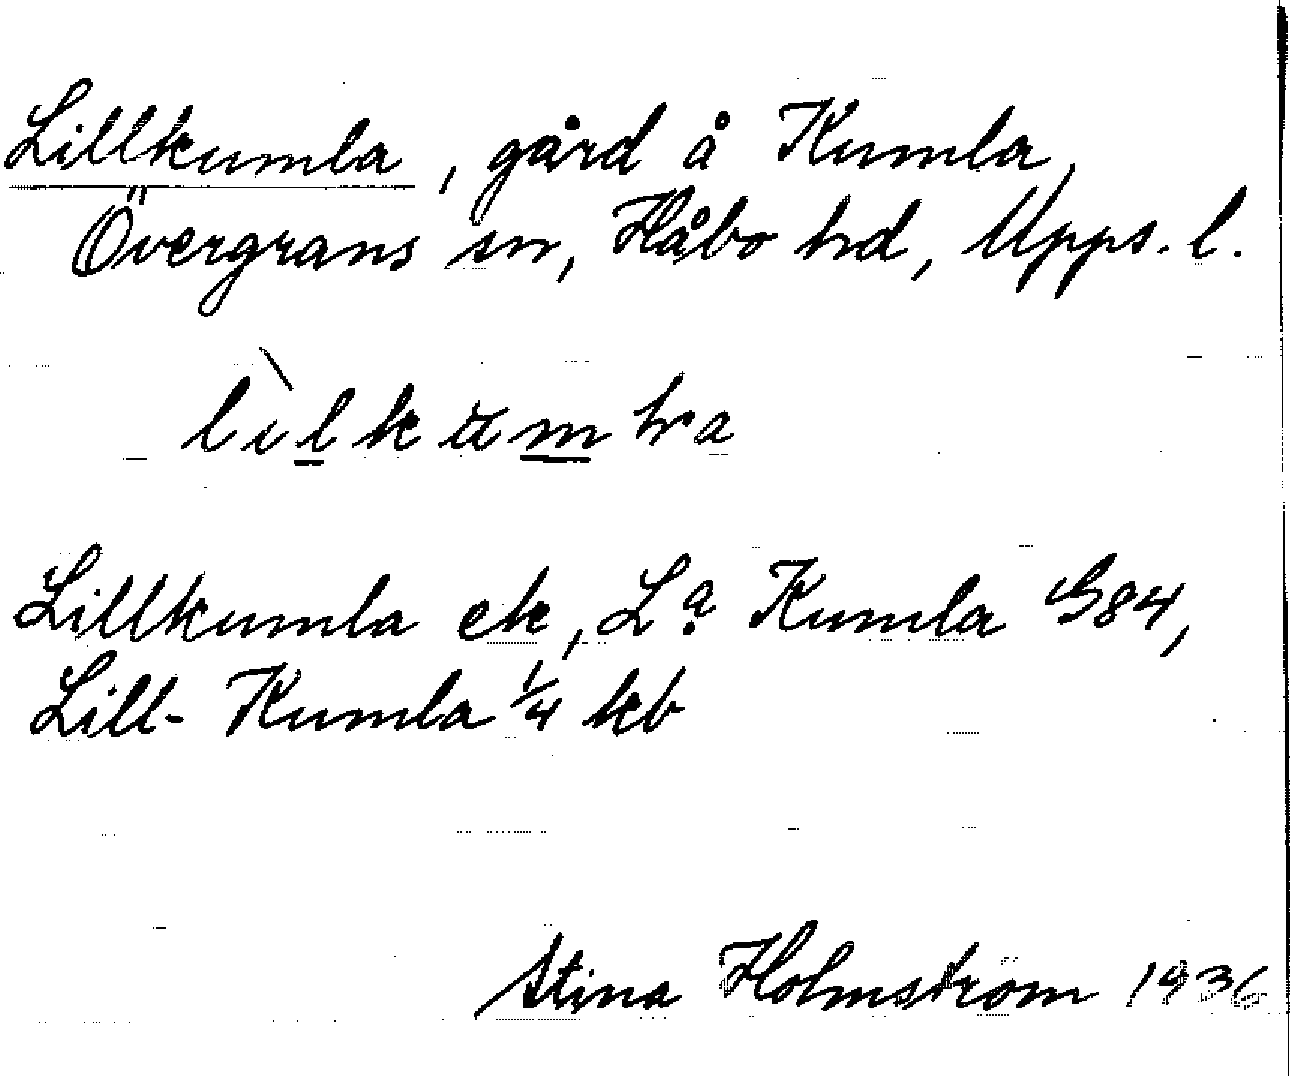 Lillkumla, gård å Kumla,
Övergrans sn, Håbo hd, Upps. l.
Lillkumla ek, La Kumla G84,
Lill-Kumla 1/4 kb
Stina Holmström 1936